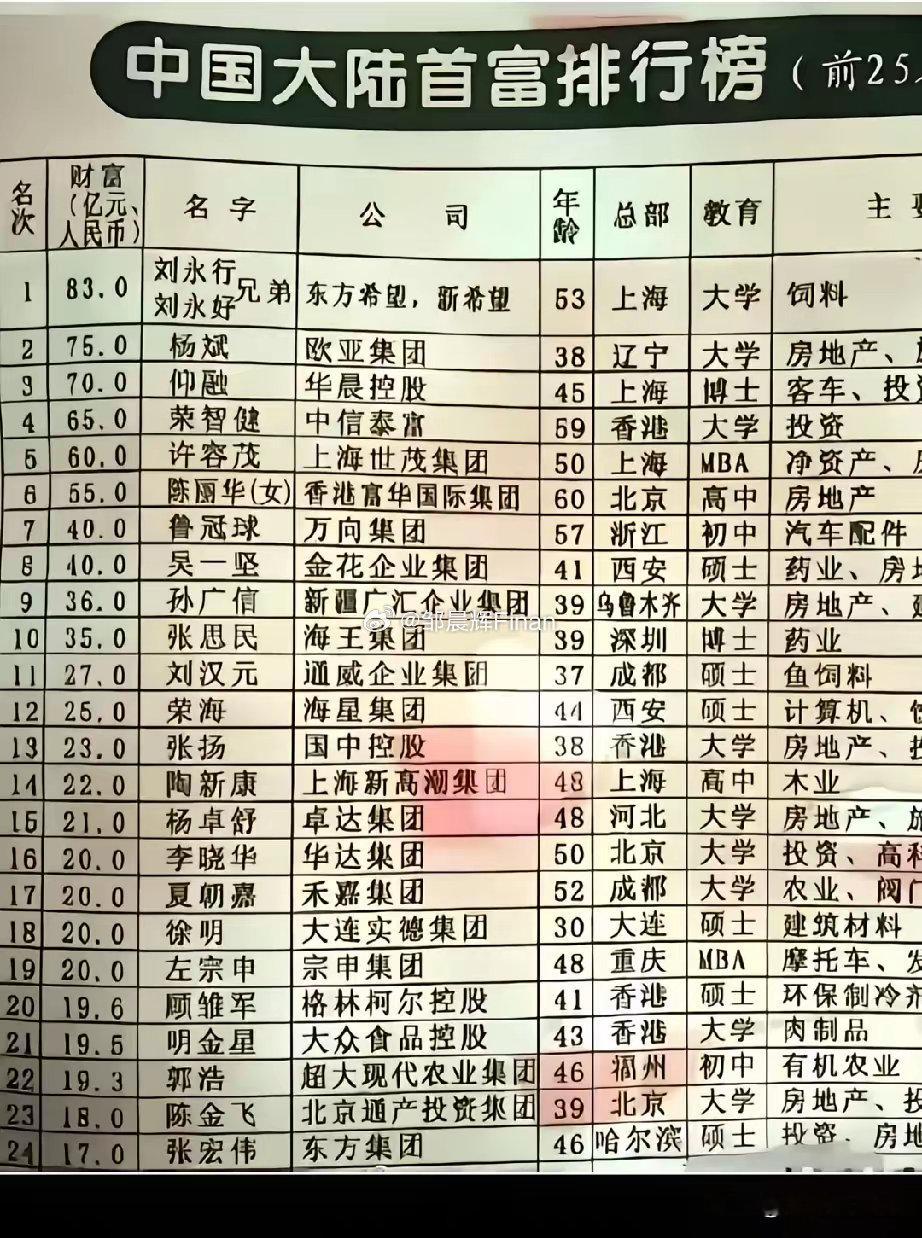 中国大陆首富排行榜（前25
名次 财富（亿元、人民币） 名字 公司 年龄 总部 教育 主
1 83.0 刘永行 刘永好 兄弟 东方希望，新希望 53 上海 大学 饲料
2 75.0 杨斌 欧亚集团 38 辽宁 大学 房地产、
3 70.0 仰融 华晨控股 45 上海 博士 客车、投资
4 65.0 荣智健 中信泰富 59 香港 大学 投资
5 60.0 许容茂 上海世茂集团 50 上海 MBA 净资产、
6 55.0 陈丽华(女) 香港富华国际集团 60 北京 高中 房地产
7 40.0 鲁冠球 万向集团 57 浙江 初中 汽车配件
8 40.0 吴一坚 金花企业集团 41 西安 硕士 药业、房地
9 36.0 孙广信 新疆广汇企业集团 39 乌鲁木齐 大学 房地产、
10 35.0 张思民 海王集团 39 深圳 博士 药业
11 27.0 刘汉元 通威企业集团 37 成都 硕士 鱼饲料
12 25.0 荣海 海星集团 44 西安 硕士 计算机、
13 23.0 张扬 国中控股 38 香港 大学 房地产、
14 22.0 陶新康 上海新高潮集团 48 上海 高中 木业
15 21.0 杨卓舒 卓达集团 48 河北 大学 房地产、
16 20.0 李晓华 华达集团 50 北京 大学 投资、高科
17 20.0 夏朝嘉 禾嘉集团 52 成都 大学 农业、阀门
18 20.0 徐明 大连实德集团 30 大连 硕士 建筑材料
19 20.0 左宗申 宗申集团 48 重庆 MBA 摩托车、发
20 19.6 顾雏军 格林柯尔控股 41 香港 硕士 环保制冷剂
21 19.5 明金星 大众食品控股 43 香港 大学 肉制品
22 19.3 郭浩 超大现代农业集团 46 福州 初中 有机农业
23 18.0 陈金飞 北京通产投资集团 39 北京 大学 房地产、投
24 17.0 张宏伟 东方集团 46 哈尔滨 硕士 投资、房地
@邹晨辉Finan